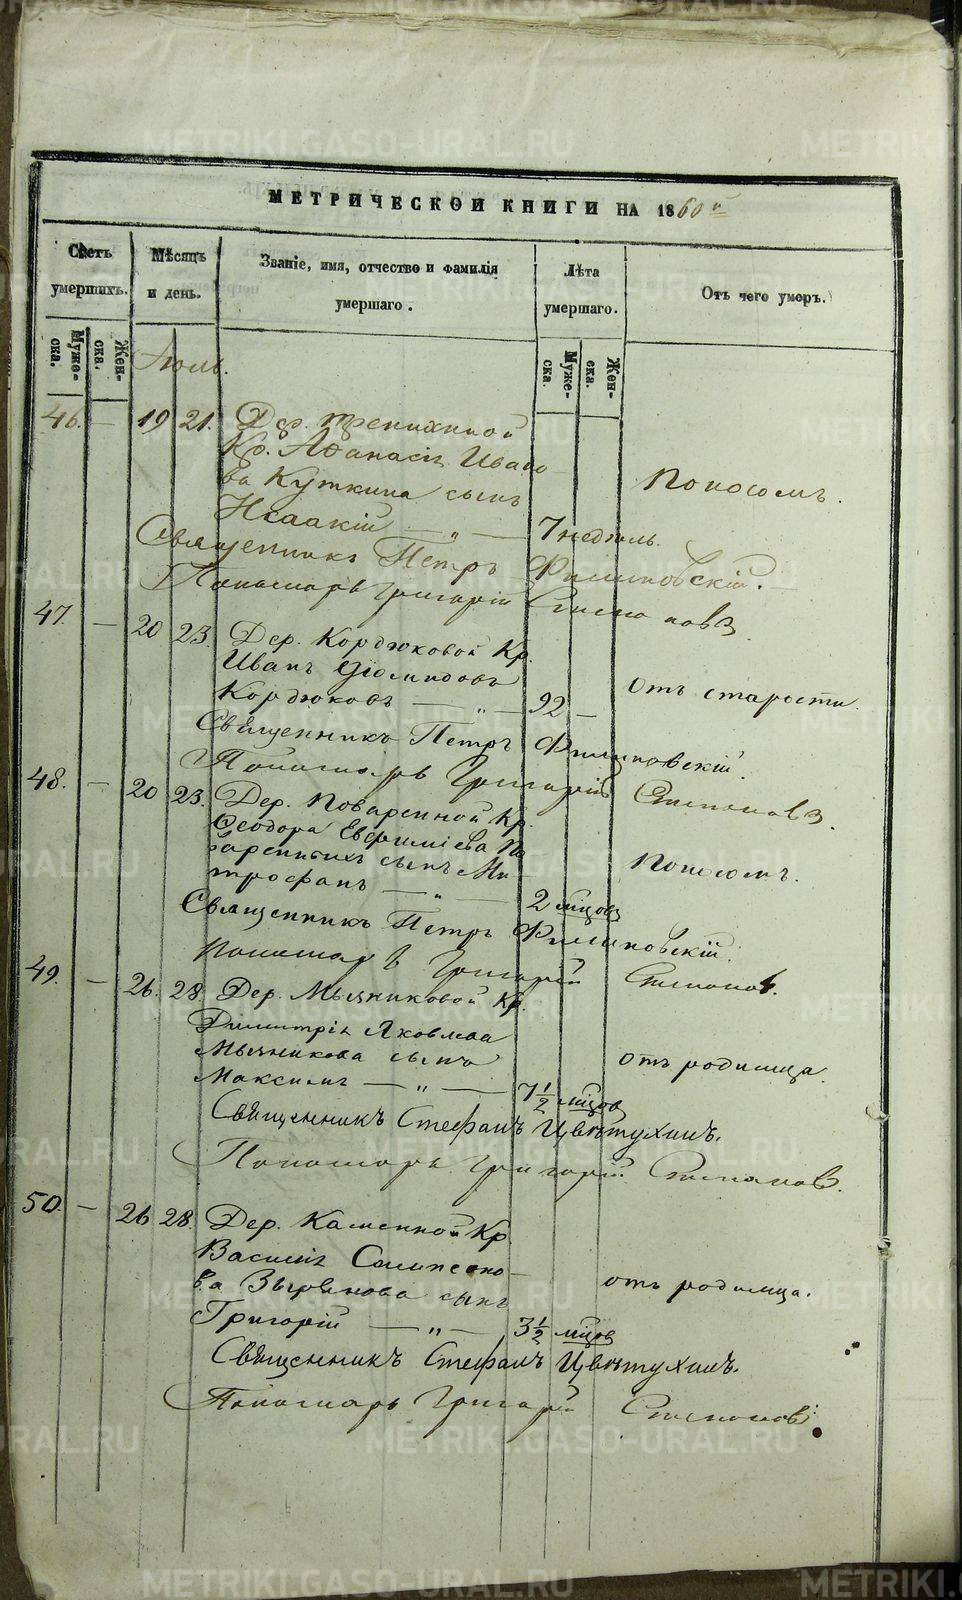 МЕТРИЧЕСКОЙ КНИГИ НА 1860й
Счетъ умершихъ.
Мѣсяцъ и день.
Званіе, имя, отчество и фамилія умершаго.
Лѣта умершаго.
Отъ чего умеръ.
Мужеска.
Женска.
Мужеска.
Женска.
Іюль.
46. — 19 21. Дер.
Кр. Аѳанасія Ивано
ва Куткина сынъ Поносомъ.
Исаакій — „ — 7 недѣль.
Священникъ Петръ Филиповскій.
Пономарь Григорій Степановъ
47. — 20 23. Дер. Кордюковой Кр.
Иванъ Ѳ
Кордюковъ — „ — 92 — отъ старости.
Священникъ Петръ Филиповскій.
Пономарь Григорій Степановъ.
48. — 20 23. Дер. Поваренной Кр.
Ѳеодора Евфиміева По
варенныхъ сынъ Ми Поносомъ.
трофанъ — „ — 2 мѣсцов
Священникъ Петръ Филиповскій.
Пономарь Григорій Степановъ.
49. — 26. 28 Дер. Мычниковой Кр.
Димитрія Яковлева
Мычникова сынъ отъ родимца.
Максимъ — „ — 7½ мѣсцов
Священникъ Стефанъ Цвѣтухинъ.
Пономарь Григорій Степановъ.
50. — 26 28. Дер. Каменной Кр.
Василія Сампсоно
ва Зырянова сынъ отъ родимца.
Григорій — „ — 3½ мѣсцов
Священникъ Стефанъ Цвѣтухинъ.
Пономарь Григорій Степановъ.
METRIKI.GASO-URAL.RU